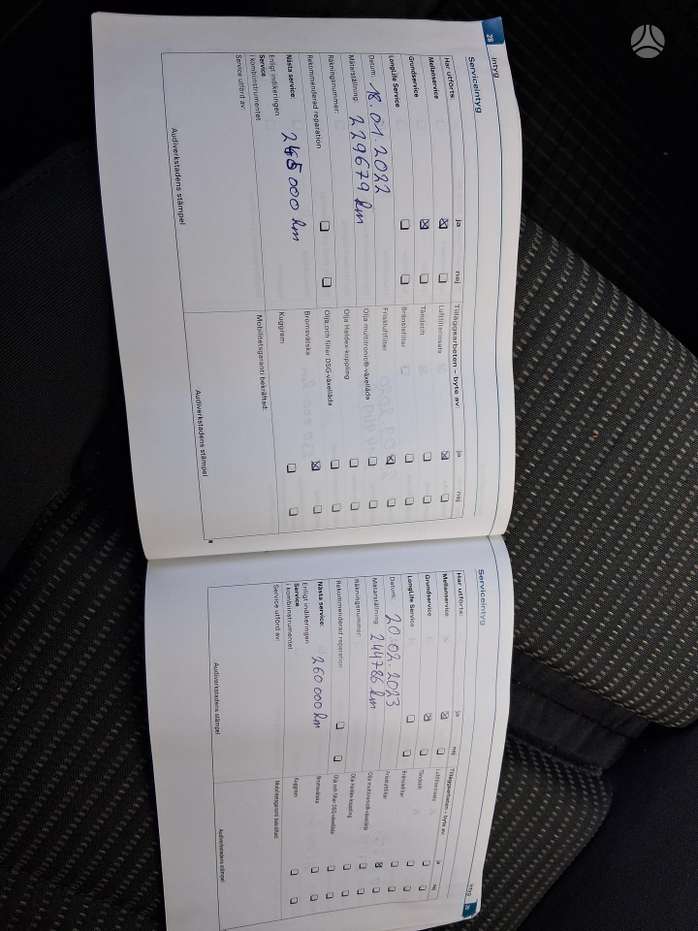 28
Intyg
Serviceintyg
Har utförts:
ja
nej
Mellanservice
Grundservice
LongLife Service
Datum: 18.01.2022
Mätarställning: 229679 km
Räkningsnummer:
Rekommenderad reparation
Nästa service: 245 000 km
Enligt indikeringen
Service
i kombiinstrumentet
Service utförd av:
Audiverkstadens stämpel
Tilläggsarbeten – byte av
ja
nej
Luftfilterinsats
Tändstift
Bränslefilter
Friskluftfilter
Olja multitronic®-växellåda
Olja Haldex-koppling
Olja och filter DSG-växellåda
Bromsvätska
Kuggrem
Mobilitetsgaranti bekräftad:
Audiverkstadens stämpel
Intyg
Serviceintyg
Har utförts:
ja
nej
Mellanservice
Grundservice
LongLife Service
Datum: 20.02.2023
Mätarställning: 244786 km
Räkningsnummer:
Rekommenderad reparation
Nästa service: 260 000 km
Enligt indikeringen
Service
i kombiinstrumentet
Service utförd av:
Audiverkstadens stämpel
Tilläggsarbeten – byte av
ja
nej
Luftfilterinsats
Tändstift
Bränslefilter
Friskluftfilter
Olja multitronic®-växellåda
Olja Haldex-koppling
Olja och filter DSG-växellåda
Bromsvätska
Kuggrem
Mobilitetsgaranti bekräftad:
Audiverkstadens stämpel